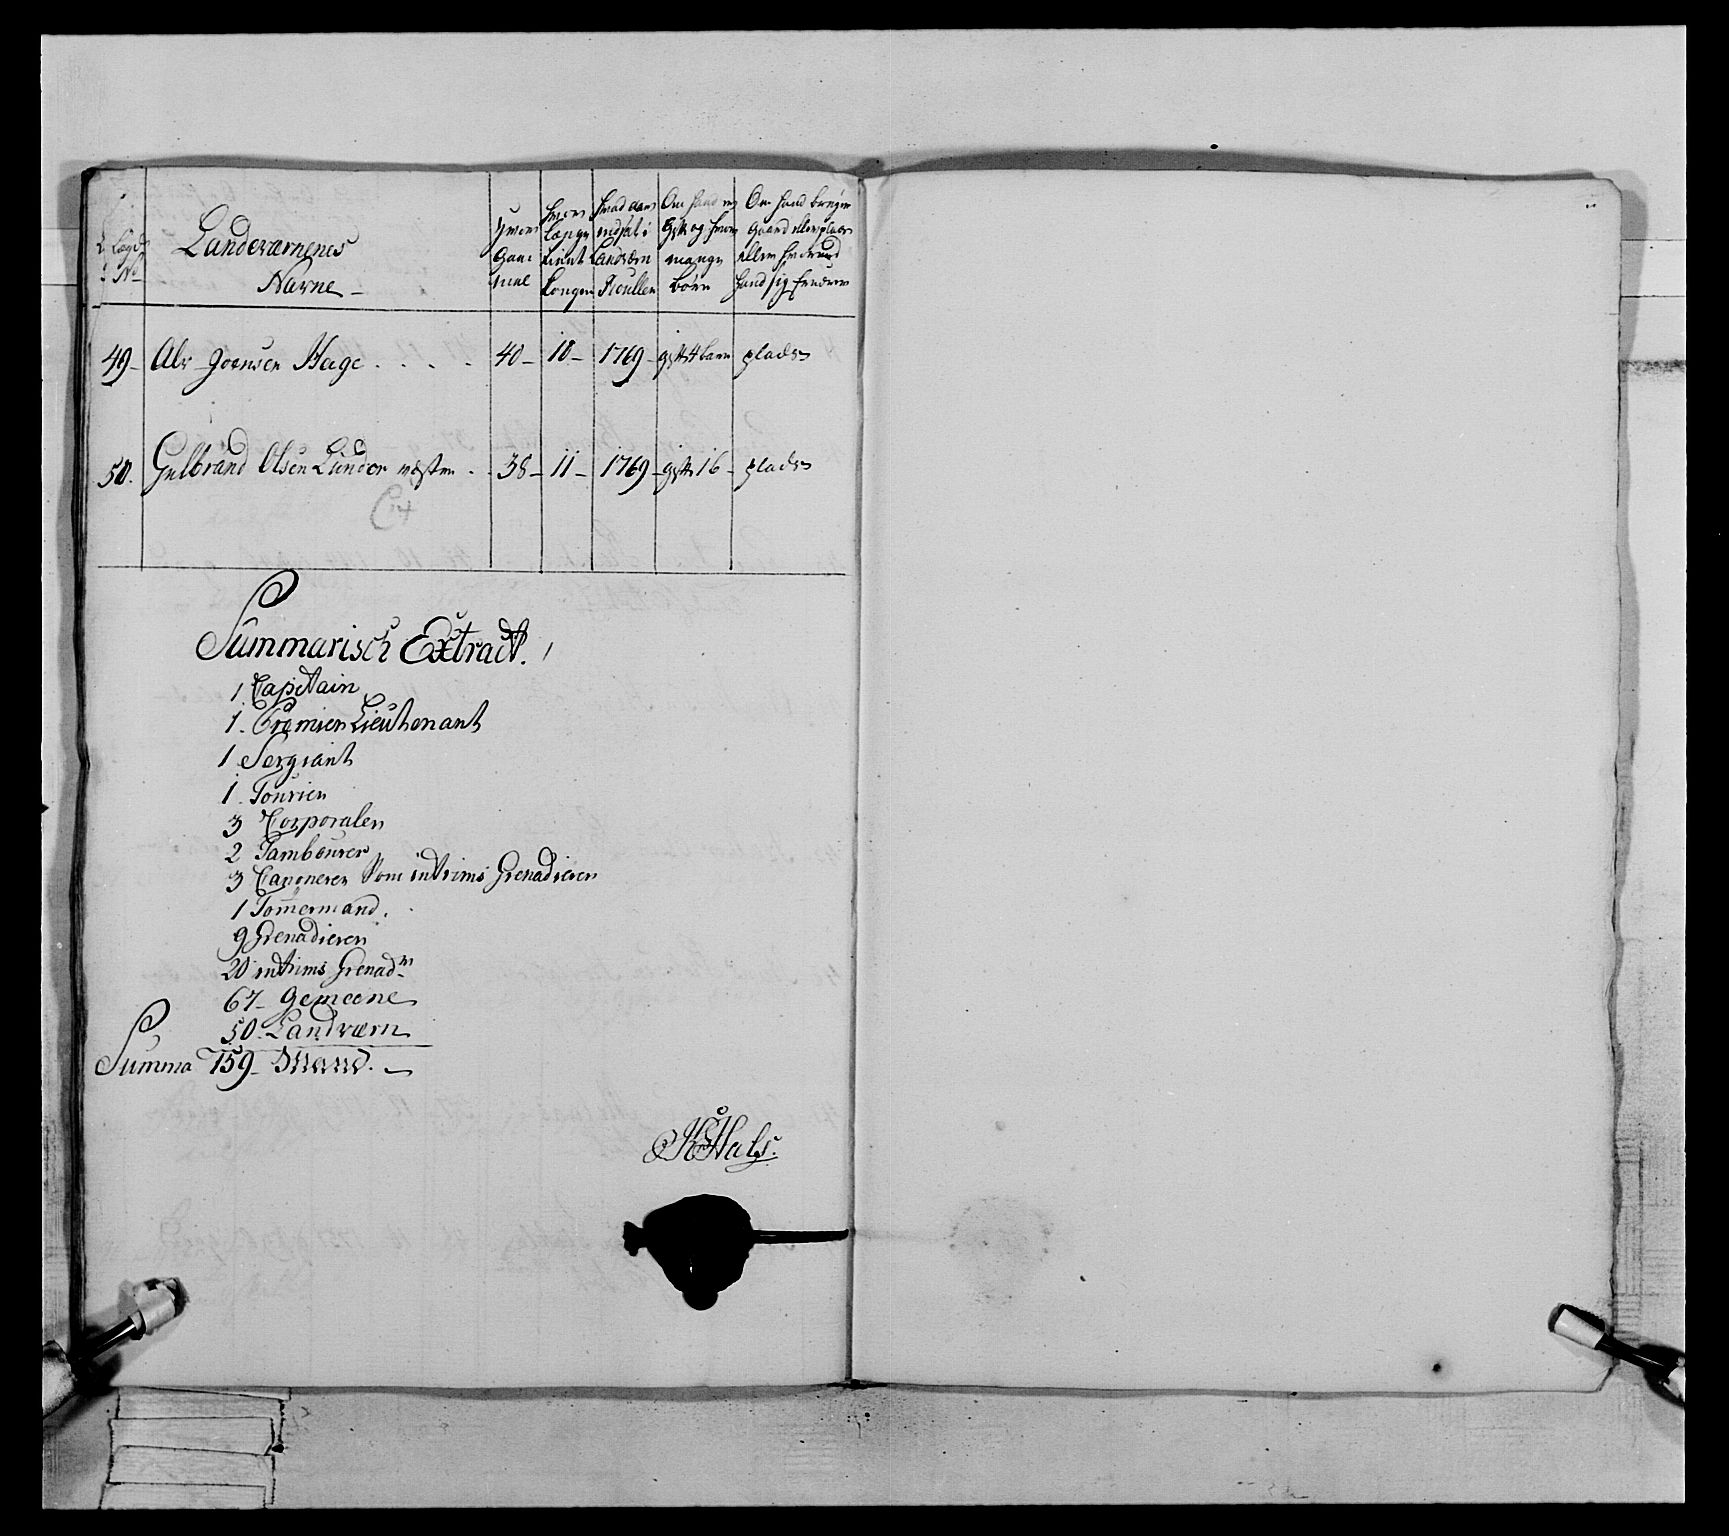 Landeværnenes
Navne
Hvor Gammel
Hvor længe tient Kongen
Hvad aar indsat i Landværn Roullen
Om Hand er gift og hvor mange børn
Om Hand bruger Gaard eller plads eller hvormed hand sig ernærer
49 - Alv Joensen Hage . . . . 40 - 18 - 1769 - gift 4 barn plads
50. Gulbrand Olsen Lunder næsten . 38 - 11 - 1769 - gift 1 b - plads
Summarisch Extract.
1 Capitain
1. Premier Lieutenant
1 Sergiant
1. Fourier
3 Corporaler
2 Tambourer
3 Canonerer Som intrims Grenadierer
1 Tømmermand.
9 Grenadierer
20 intrims Grenadr
67 - Gemeene
50. Landværn
Summa 159 - Mand.
Hals.